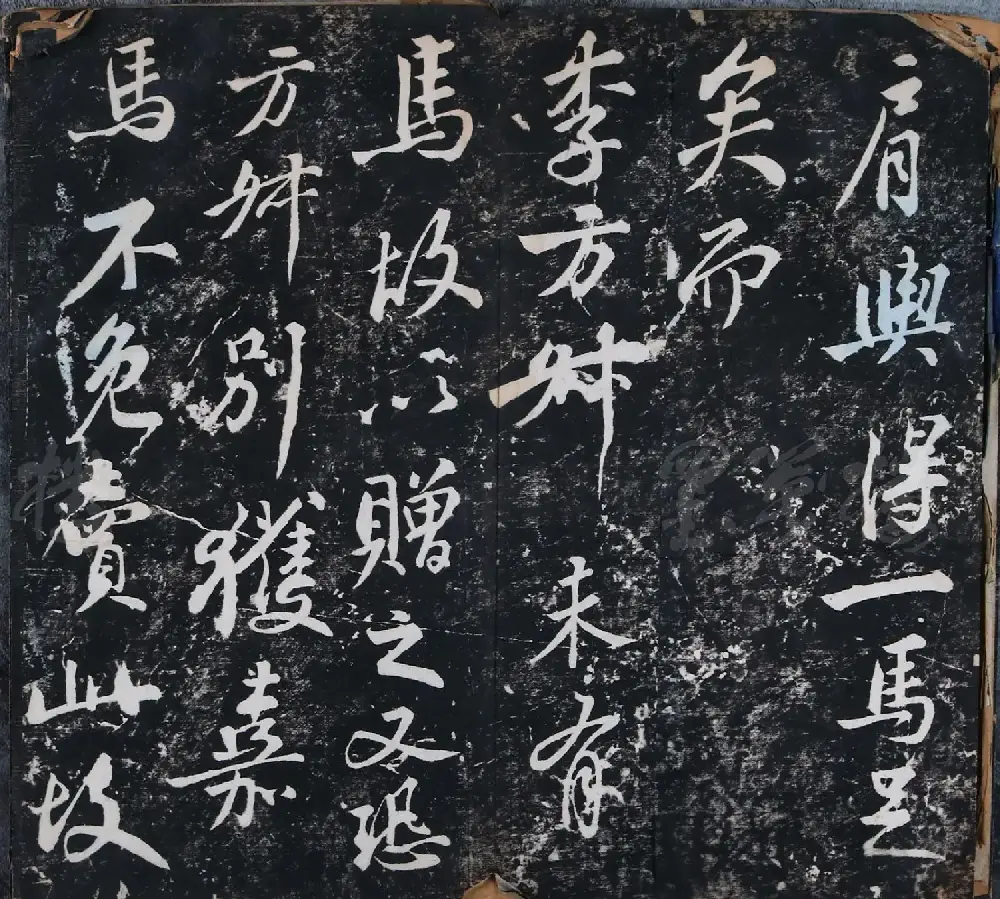 肩輿得一馬足
矣而
李方叔未有
馬故以贈之又恐
方叔別獲嘉
馬不免賣此故